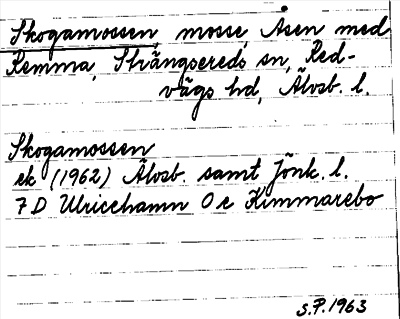 Skogamossen, mosse, Åsen med
Remma, Strängsereds sn, Red-
vägs hd, Älvsb. l.
Skogamossen
ek (1962) Älvsb. samt Jönk. l.
7 D Ulricehamn 0 e Kimmarebo
S.P. 1963